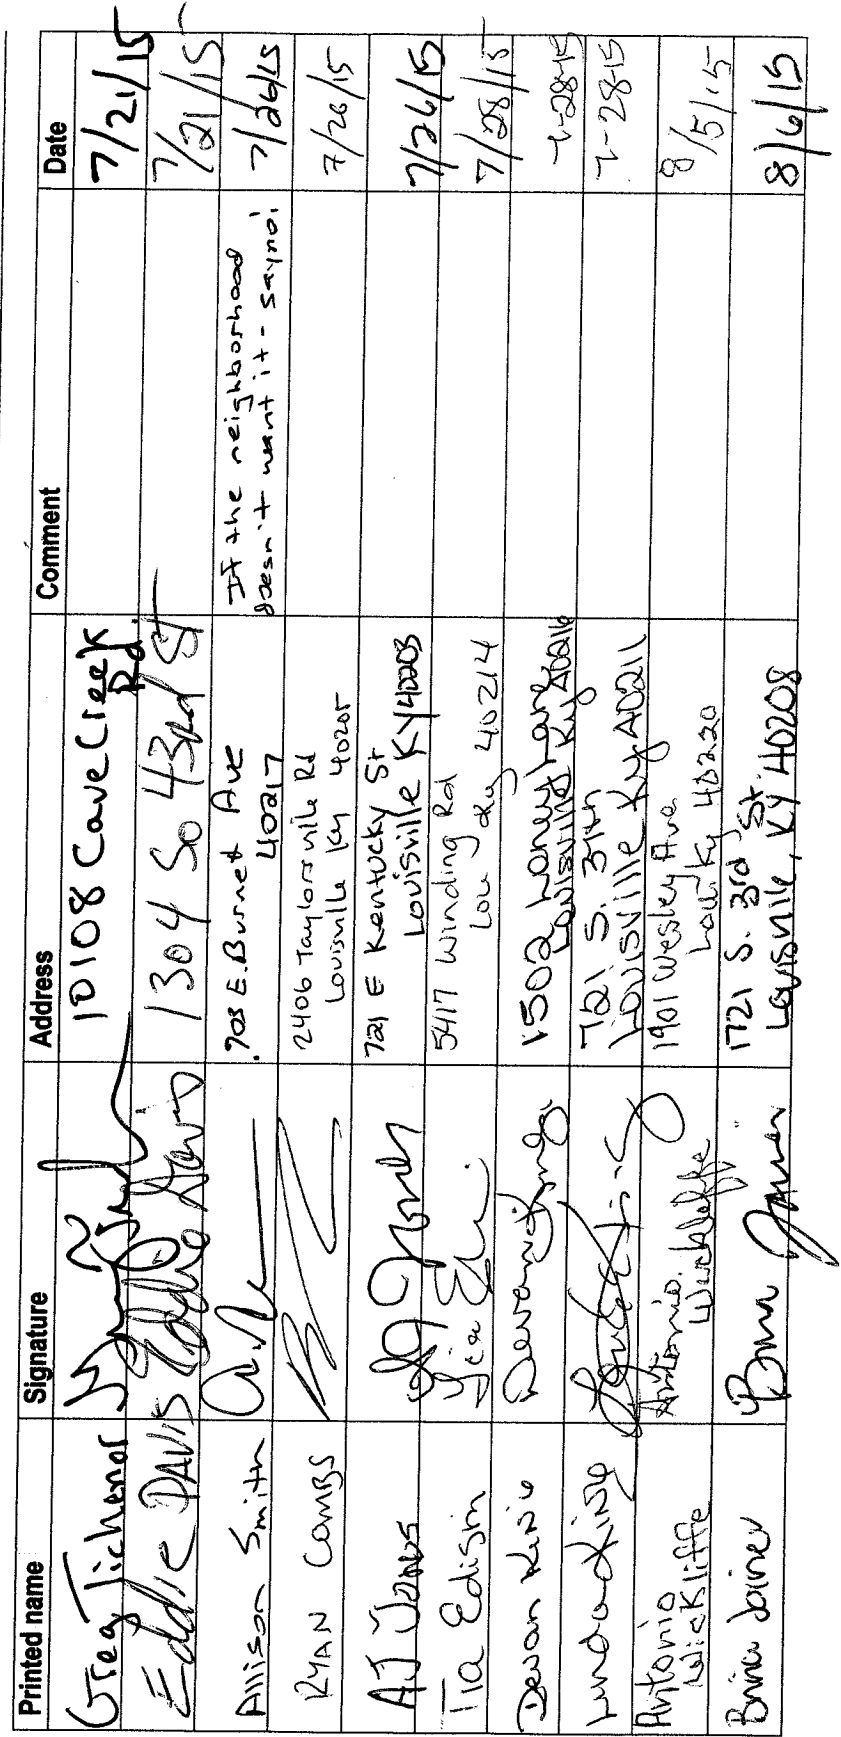 Printed name Signature Address Comment Date
Greg Tichenor 10108 Cave Creek Rd 7/21/15
Eddie DAVIS Eddie Davis 1304 So 43rd St 7/21/15
Allison Smith 703 E. Burnet Ave
40217 If the neighborhood
doesn't want it - say no! 7/26/15
RYAN COMBS 2406 Taylorsville Rd
Louisville Ky 40205 7/26/15
AJ Jones AJ Jones 721 E Kentucky St
Louisville KY 40203 7/26/15
Tia Edison 5417 Winding Rd
Lou Ky 40214 7/28/15
Devan King Devan King 1502 Laney Lane
Louisville Ky 40216 7-28-15
Linda King 721 S. 37th
Louisville Ky 40211 7-28-15
Antonio
Wickliffe Antonio
Wickliffe 1901 Wesley Ave
Lou Ky 40220 8/5/15
Brina Joiner Brina Joiner 1721 S. 3rd St.
Louisville, KY 40208 8/6/15